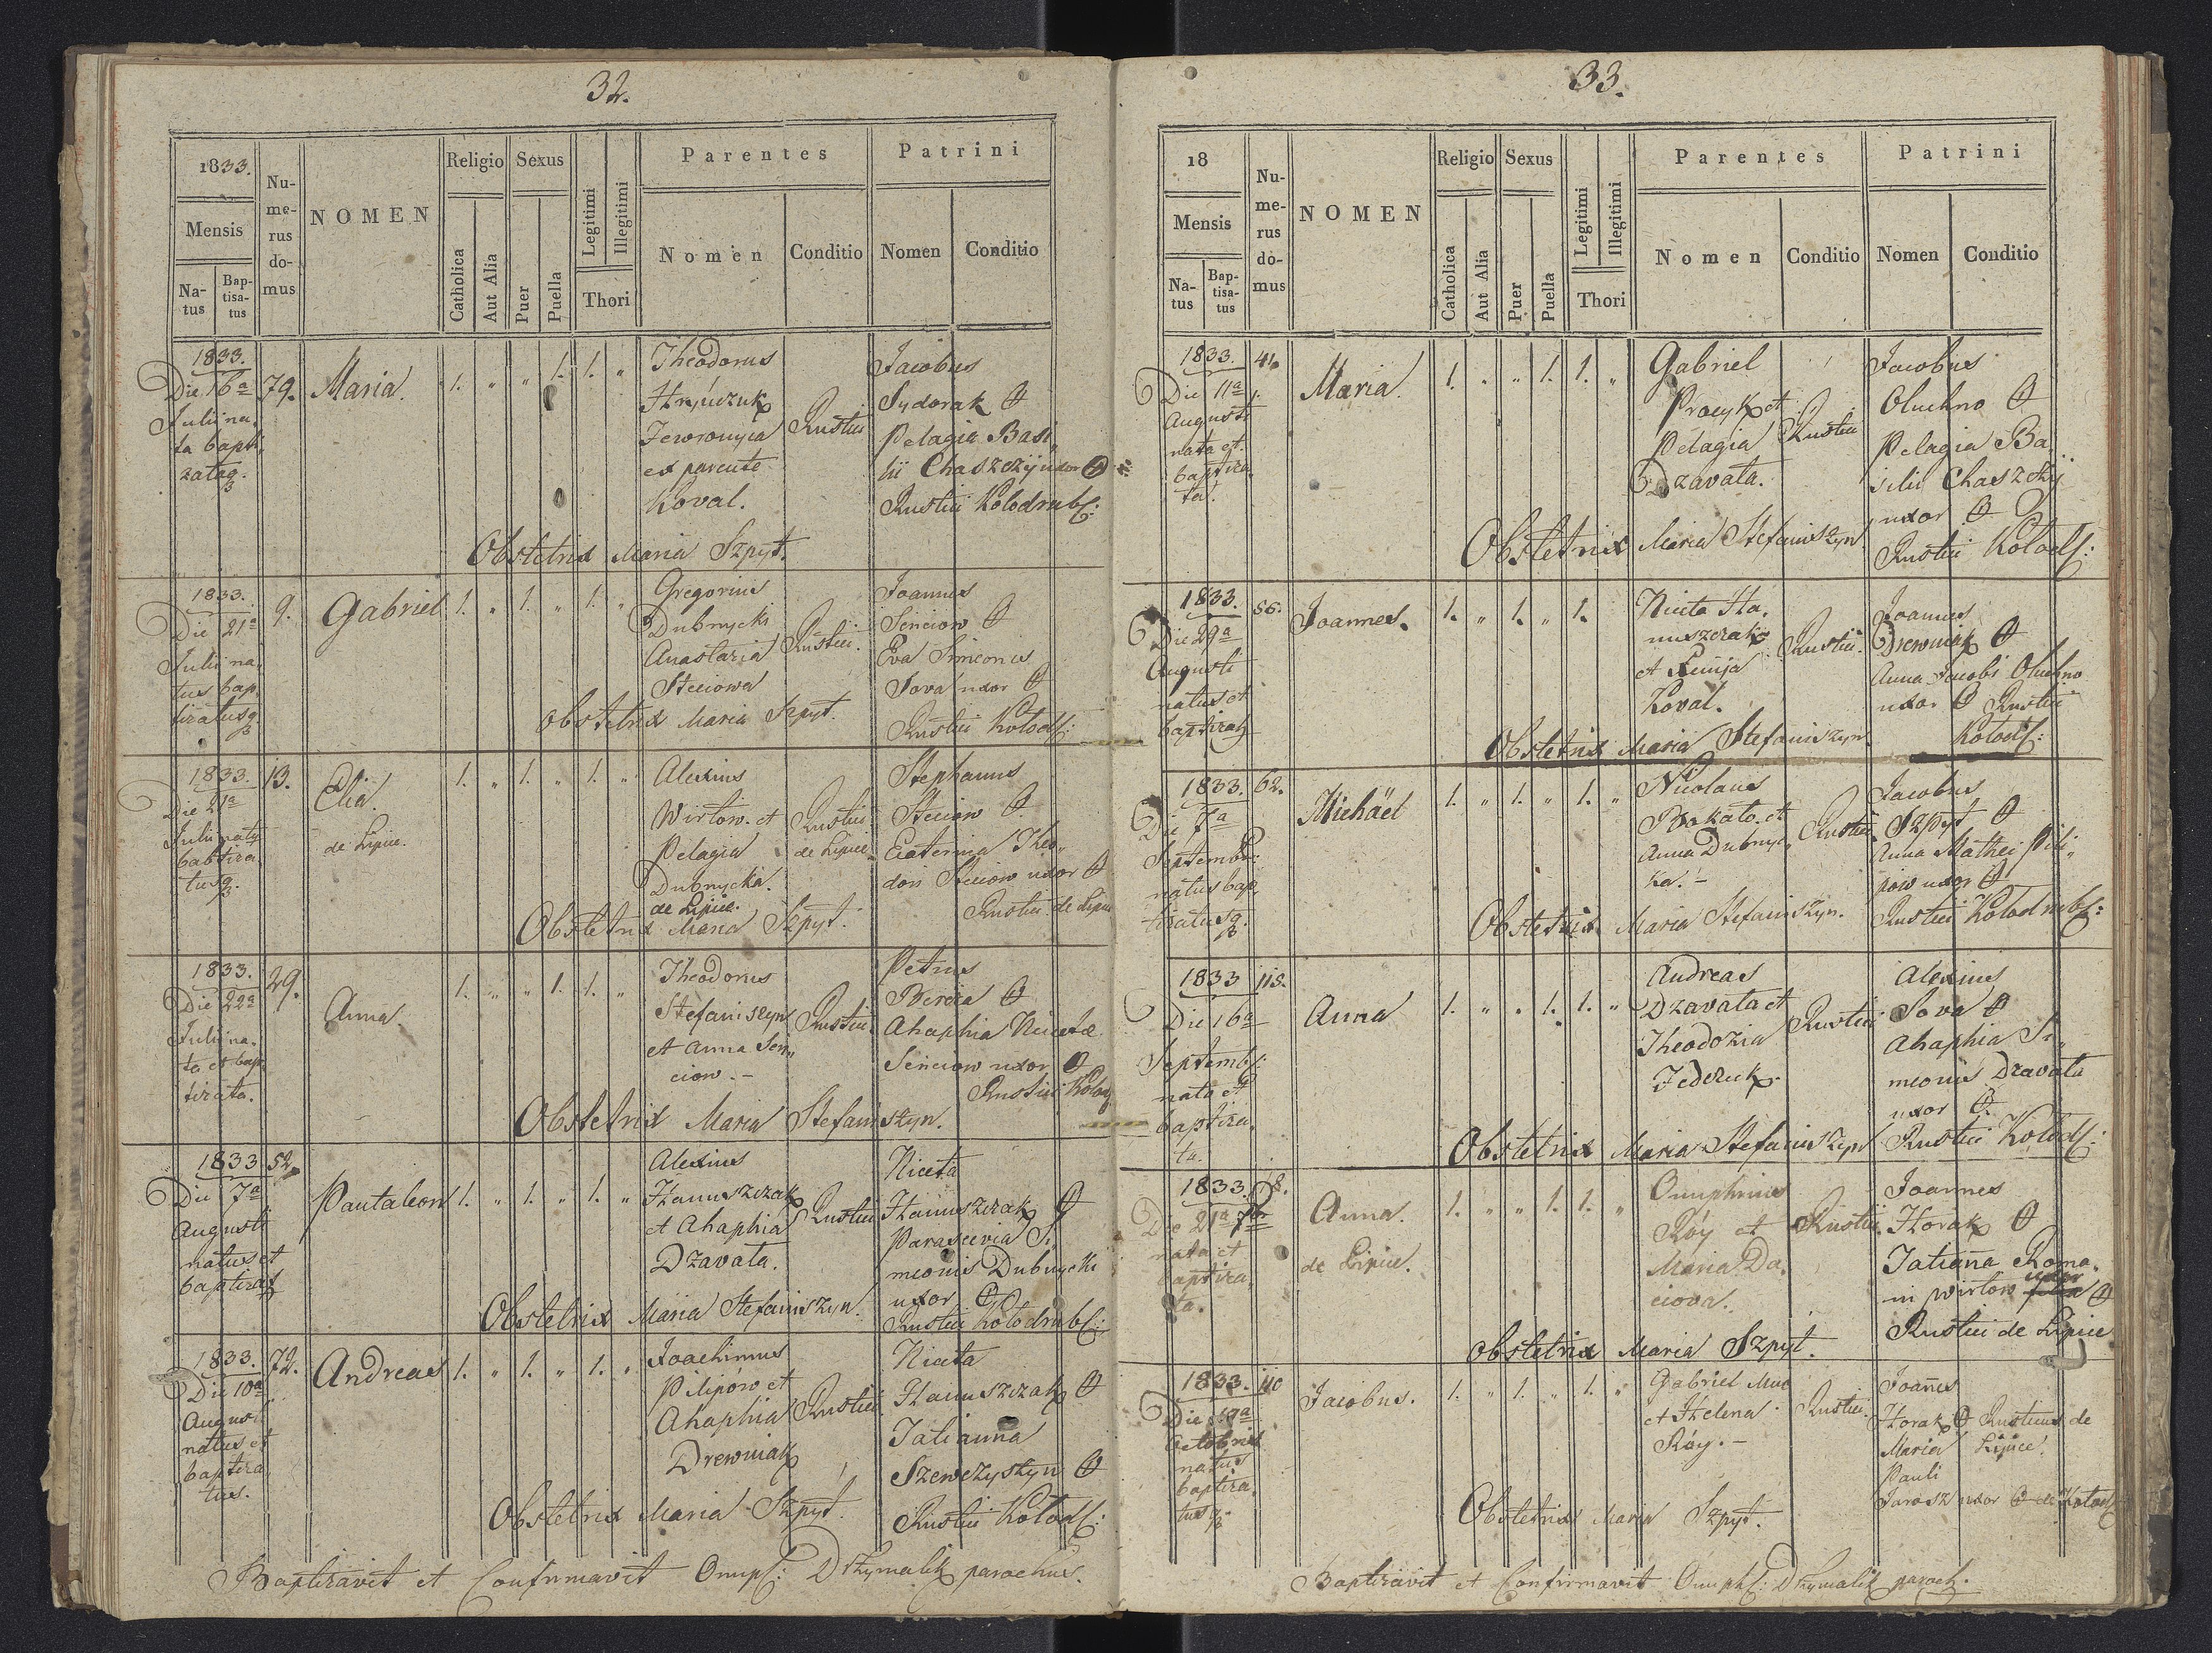 32.
1833.
Mensis
Na-
tus
Bap-
tisa-
tus
Nu-
me-
rus
do-
mus
NOMEN
Religio
Catholica
Aut Alia
Sexus
Puer
Puella
Legitimi
Illegitimi
Thori
Parentes
Nomen
Conditio
Patrini
Nomen
Conditio
1833.
Die 16a
Julii na„
ta bapti„
zataq.
79.
Maria
1. „ „ 1. 1. „
Theodorus
Hryńczuk
Jewronyia
ex parente
Koval.
Rustici
Jacobus
Sydorak
Pelagia Basi„
lii Chaszczij uxor
Rustici Kolodrubs:
Obstetrix Maria Szpyt.
1833.
Die 21a
Julii na„
tus bap„
tizatusq.
9.
Gabriel
1. „ 1. „ 1. „
Gregorius
Dubnycki
Anastazia
Steciowa
Rustici.
Joannes
Senciow
Eva Simeonis
Sova uxor
Rustici Kolods:
Obstetrix Maria Szpyt.
1833.
Die 21a
Julii nat9
babtiza„
tusq.
13.
Elia.
de Lipice.
1. „ 1. „ 1. „
Alexius
Wirtow. et
Pelagia
Dubnycka.
de Lipice.
Rustici
de Lipice
Stephanus
Steciow
Ecaterina Theo„
dori Steciow uxor
Rustici de Lipice
Obstetrix Maria Szpyt.
1833.
Die 22a
Julii na„
ta et bap„
tizata.
29.
Anna
1. „ „ 1. 1. „
Theodorus
Stefaniszyn
et Anna Sen„
ciow.-
Rustici
Petrus
Bereza
Ahaphia Nicetae
Senciow uxor
Rustici Kolod
Obstetrix Maria Stefaniszyn.
1833
Die 7a
Augusti
natus et
baptizat9
52.
Pantaleon
1. „ 1. „ 1. „
Alexius
Hanuszczak
et Ahaphia
Dzavata.
Rustici
Niceta
Hanuszczak
Parascevia Si„
meonis Dubnycki
uxor
Rustici Kolodrubs:
Obstetrix Maria Stefaniszyn.
1833.
Die 10a
Augusti
natus et
baptiza„
tus.
72.
Andreas
1. „ 1. „ 1. „
Joachimus
Pilipow et
Ahaphia
Drewniak
Rustici
Niceta
Hanuszczak
Tatianna
Szewczyszyn
Rustici Kolods:
Obstetrix Maria Szpyt.
Baptizavit et Confirmavit Onup: Drzymalik parochus.
33.
18
Mensis
Na-
tus
Bap-
tisa-
tus
Nu-
me-
rus
do-
mus
NOMEN
Religio
Catholica
Aut Alia
Sexus
Puer
Puella
Legitimi
Illegitimi
Thori
Parentes
Nomen
Conditio
Patrini
Nomen
Conditio
1833.
Die 11a
Augusti
nata et
baptiza„
ta.
Maria.
1. „ „ 1. 1. „
Gabriel
Procyk et
Pelagia
Dzavata.
Rustici
Jacobus
Oluchno
Pelagia Ba„
silii Chaszczij
uxor
Rustici Kolods:
Obstetrix Maria Stefaniszyn
1833.
Die 29a
Augusti
natus et
baptizat9
56.
Joannes.
1. „ 1. „ 1.
Niceta Ha„
nuszczak
et
Koval.
Rustici.
Joannes
Drewniak
Anna Jacobi Oluchno
uxor Rustici
Kolods:
Obstetrix Maria Stefaniszyn.
1833.
Die 7a
Septembr:
natus bap„
tizatusq.
62.
Michäel
1. „ 1. „ 1. „
Nicolaus
Bakato. et
Anna Dubnyc„
ka.-
Rustici
Jacobus
Szpyt
Anna Mathei Pili„
pow uxor
Rustici Kolodrubs:
Obstetrix Maria Stefaniszyn.
1833
Die 16a
Septembs:
nata et
baptiza„
ta.
113.
Anna
1. „ „ 1. 1. „
Andreas
Dzavata et
Theodozia
Fedczuk.
Rustici
Alexius
Sova
Ahaphia Si„
meonis Dzavata
uxor
Rustici Kolods:
Obstetrix Maria Stefaniszyn
1833.
Die 21a 7br
nata et
baptiza„
ta.
8.
Anna.
de Lipice.
1. „ „ 1. 1. „
Onuphrius
Róy et
Maria Da„
ciova.
Rustici.
Joannes
Horak
Tatianna Roma„
ni Wirtow uxor
Rustici de Lipice
Obstetrix Maria Szpyt.
1833.
Die 19a
Octobris
natus
baptiza„
tusq.
110
Jacobus.
1. „ 1. „ 1. „
Gabriel Muc
et Helena
Róy.-
Rustici
Joañes
Horak Rusticus de
Maria Lipice.
Pauli
Jarosz uxor de Kolods
Obstetrix Maria Szpyt.
Baptizavit et Confirmavit Onuph: Drzymalik paroch.